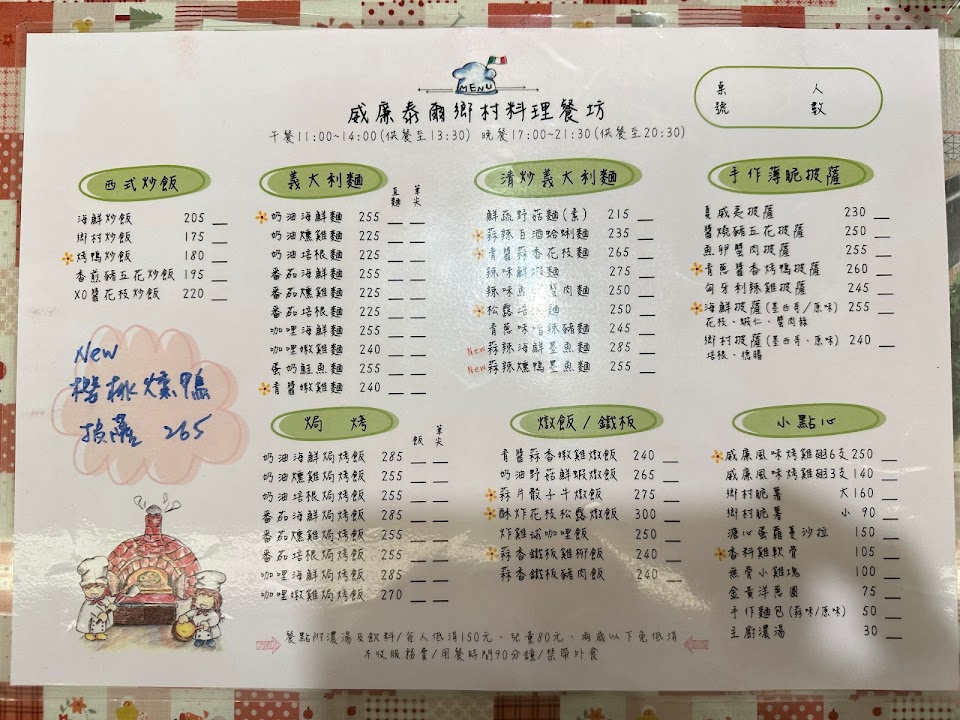 MENU
威廉泰爾鄉村料理餐坊
午餐11:00~14:00(供餐至13:30) 晚餐17:00~21:30(供餐至20:30)
桌號 人數
西式炒飯
海鮮炒飯 205
鄉村炒飯 175
烤鴨炒飯 180
香煎豬五花炒飯 195
XO醬花枝炒飯 220
New
櫻桃燻鴨
披薩 265
義大利麵 直麵 筆尖
奶油海鮮麵 255
奶油燻雞麵 225
奶油培根麵 225
番茄海鮮麵 255
番茄燻雞麵 225
番茄培根麵 225
咖哩海鮮麵 255
咖哩嫩雞麵 240
蛋奶鮭魚麵 255
青醬嫩雞麵 240
清炒義大利麵
鮮蔬野菇麵(素) 215
蒜辣白酒蛤蜊麵 235
青醬蒜香花枝麵 265
辣味鮮蝦麵 275
辣味魚卵蟹肉麵 250
松露培根麵 250
青蔥味噌辣豬麵 245
New 蒜辣海鮮墨魚麵 285
New 蒜辣燻鴨墨魚麵 255
手作薄脆披薩
夏威夷披薩 230
醬燒豬五花披薩 250
魚卵蟹肉披薩 255
青蔥醬香烤鴨披薩 260
匈牙利辣雞披薩 245
海鮮披薩(墨西哥/原味) 255
花枝、蝦仁、蟹肉絲
鄉村披薩(墨西哥、原味) 240
培根、德腸
焗烤 飯 筆尖
奶油海鮮焗烤飯 285
奶油燻雞焗烤飯 255
奶油培根焗烤飯 255
番茄海鮮焗烤飯 285
番茄燻雞焗烤飯 255
番茄培根焗烤飯 255
咖哩海鮮焗烤飯 285
咖哩嫩雞焗烤飯 270
燉飯/鐵板
青醬蒜香嫩雞燉飯 240
奶油野菇鮮蝦燉飯 265
蒜片骰子牛燉飯 275
酥炸花枝松露燉飯 300
炸雞城咖哩飯 250
蒜香鐵板雞柳飯 240
蒜香鐵板豬肉飯 240
小點心
威廉風味烤雞翅6支 250
威廉風味烤雞翅3支 140
鄉村脆薯 大 160
鄉村脆薯 小 90
溏心蛋蘿蔓沙拉 150
香料雞軟骨 105
無骨小雞塊 100
金黃洋蔥圈 75
手作麵包(蒜味/原味) 50
主廚濃湯 30
餐點附濃湯及飲料/每人低消150元、兒童80元、兩歲以下免低消
不收服務費/用餐時間90分鐘/禁帶外食